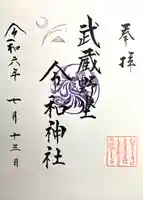 奉拝
武蔵野坐
令和神社
令和六年 七月十三日